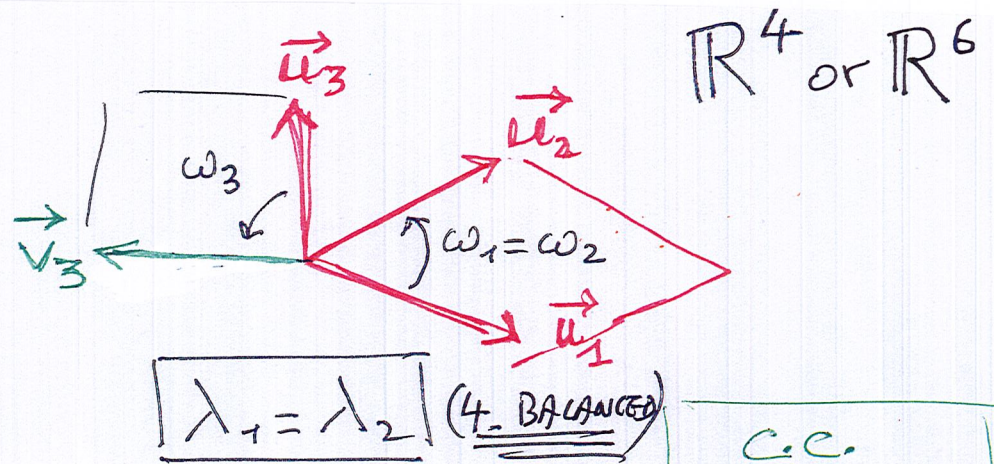 ℝ⁴ or ℝ⁶
u⃗₃
u⃗₂
ω₃
v⃗₃
ω₁=ω₂
u⃗₁
λ₁=λ₂ (4_BALANCED)
C.C.